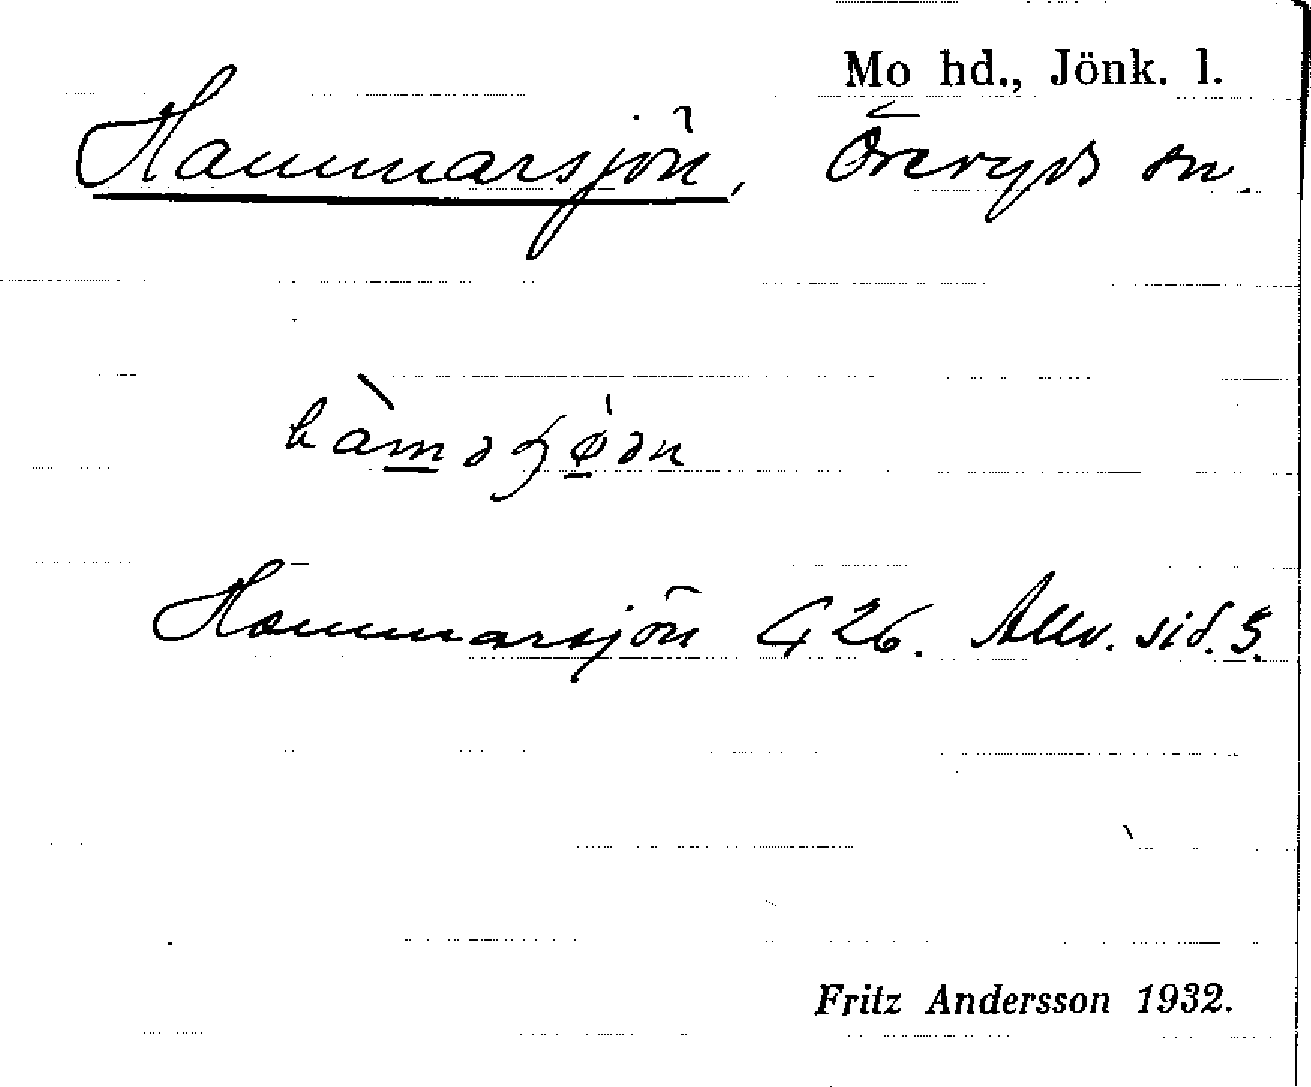 Mo hd., Jönk. l.
Hammarsjön, Öreryds sn.
hàməʃø̀ən
Hammarsjön G 26. Allv. sid. 3.
Fritz Andersson 1932.